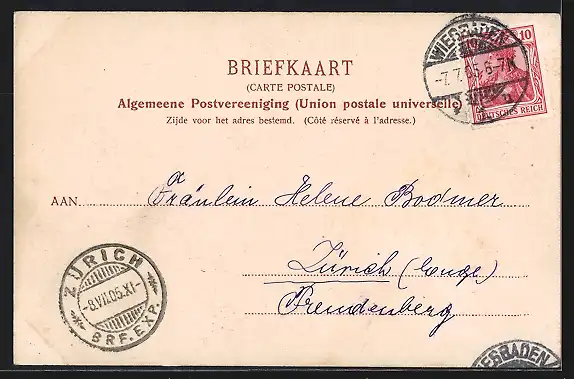 WIESBADEN
-7.7.05.6-7N
10
DEUTSCHES REICH
BRIEFKAART
(CARTE POSTALE)
Algemeene Postvereeniging (Union postale universelle)
Zijde voor het adres bestemd. (Côté réservé à l'adresse.)
AN Fräulein Helene Bodmer
Zürich (Enge)
Freudenberg
ZÜRICH
-8.VII.05.XI-
BRF.EXP.
WIESBADEN